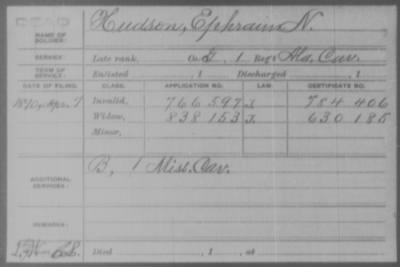 DEAD
NAME OF SOLDIER: Hudson, Ephraim N.
SERVICE: Late rank, Co. G, 1 Reg't Ala. Cav.
TERM OF SERVICE: Enlisted , 1 Discharged , 1
DATE OF FILING. CLASS. APPLICATION NO. LAW. CERTIFICATE NO.
1890, Apr. 7 Invalid, 766 597 J. 784 406
Widow, 838 153 J. 630 185
Minor,
ADDITIONAL SERVICES: B, 1 Miss. Cav.
REMARKS:
Died , 1 , at